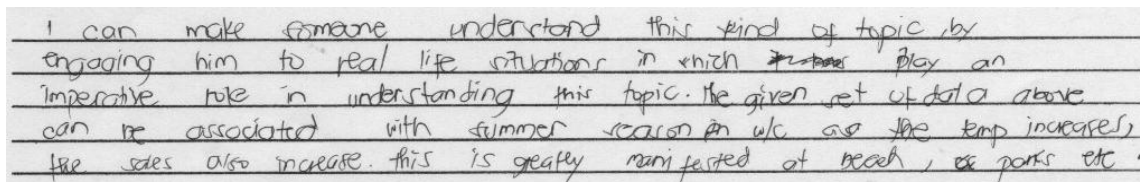 I can make someone understand this kind of topic, by
engaging him to real life situations in which play an
imperative role in understanding this topic. The given set of data above
can be associated with summer season in w/c as the temp increases,
the sales also increase. this is greatly manifested at beach, parks etc.